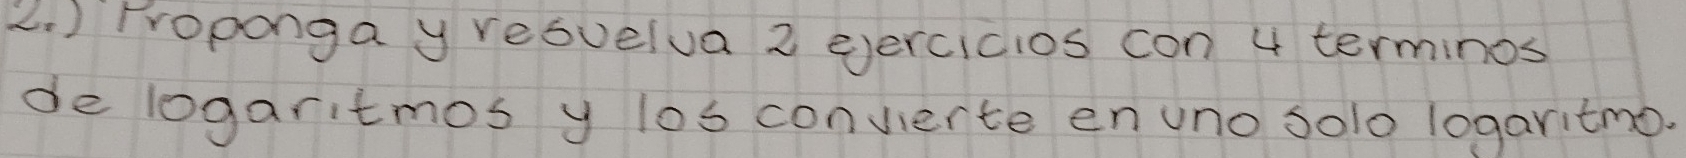 2.) Proponga y resuelva 2 ejercicios con 4 terminos
de logaritmos y los convierte en uno solo logaritmo.